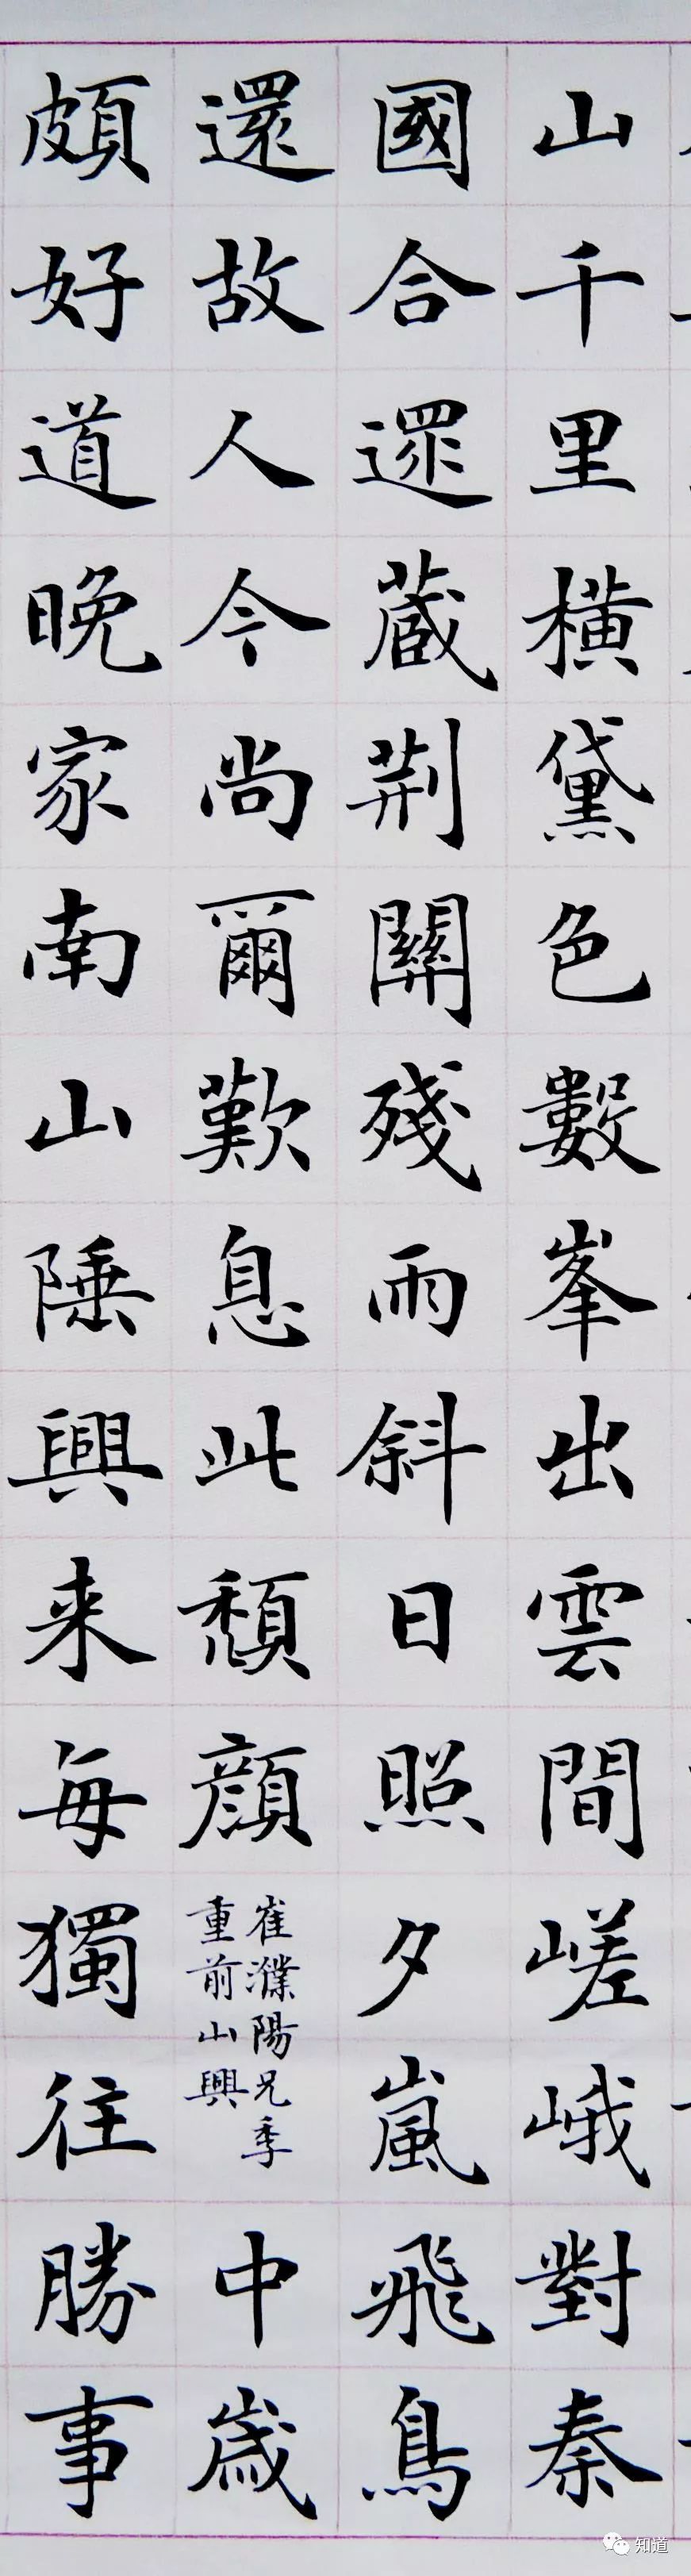 山千里橫黛色數峯出雲間嵯峨對秦
國合遝蔵荆關殘雨斜日照夕嵐飛鳥
還故人今尚爾歎息此頹顔
崔濮陽兄季
重前山興
中歳
頗好道晚家南山陲興来每獨往勝事
知道